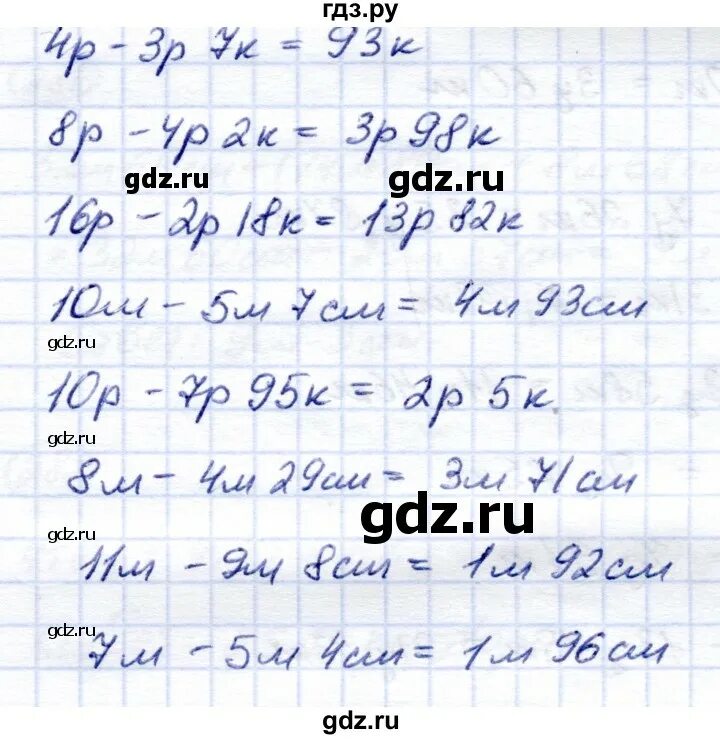 гдз.ру
4р - 3р 7к = 93к
8р - 4р 2к = 3р 98к
gdz.ru gdz.ru
16р - 2р 18к = 13р 82к
10м - 5м 7см = 4м 93см
gdz.ru
10р - 7р 95к = 2р 5к.
gdz.ru
8м - 4м 29см = 3м 71см
gdz.ru
gdz.ru
11м - 9м 8см = 1м 92см
gdz.ru
7м - 5м 4см = 1м 96см
gdz.ru